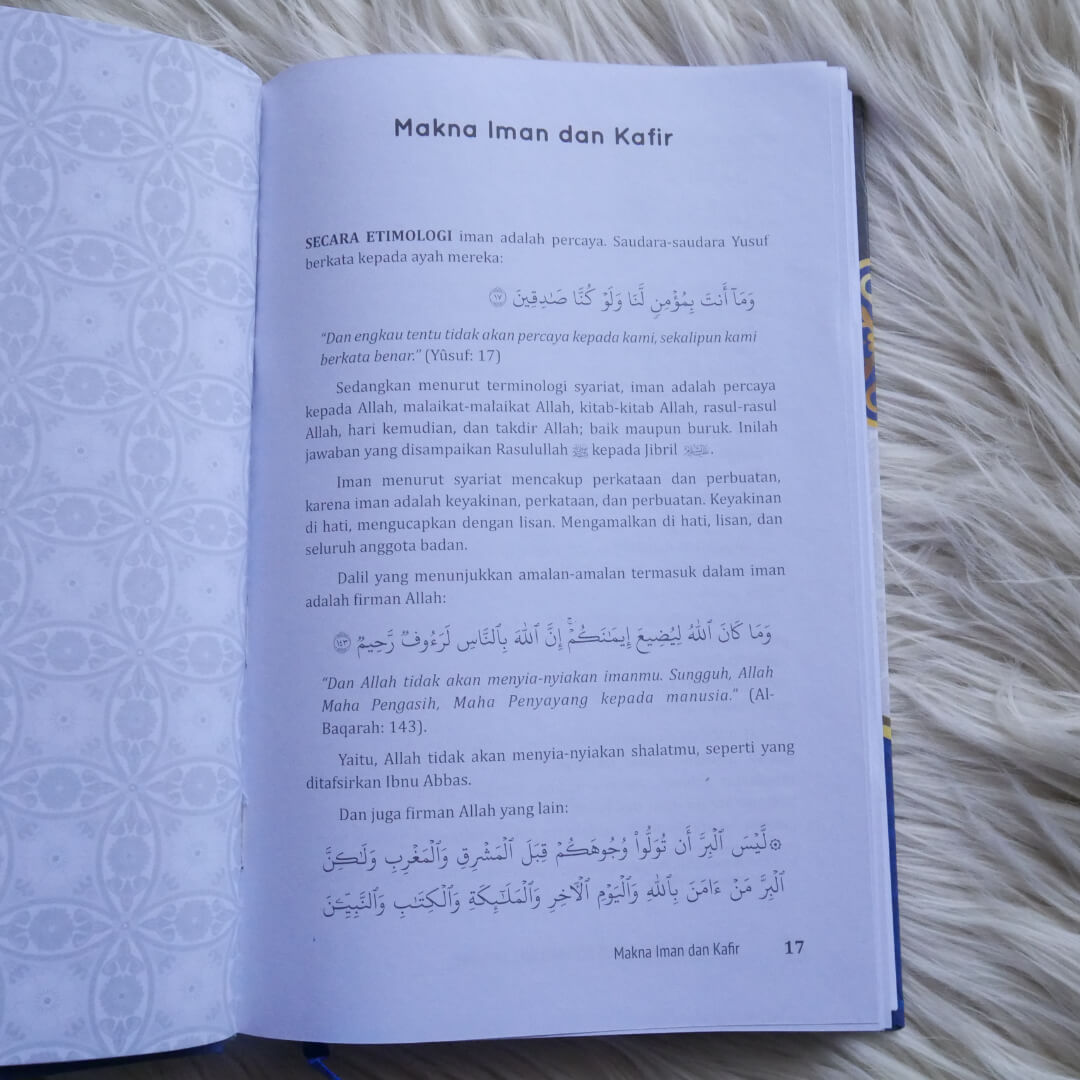 Makna Iman dan Kafir
SECARA ETIMOLOGI iman adalah percaya. Saudara-saudara Yusuf
berkata kepada ayah mereka:
وَمَآ أَنتَ بِمُؤْمِنٍ لَّنَا وَلَوْ كُنَّا صَٰدِقِينَ ۝١٧
“Dan engkau tentu tidak akan percaya kepada kami, sekalipun kami
berkata benar.” (Yûsuf: 17)
Sedangkan menurut terminologi syariat, iman adalah percaya
kepada Allah, malaikat-malaikat Allah, kitab-kitab Allah, rasul-rasul
Allah, hari kemudian, dan takdir Allah; baik maupun buruk. Inilah
jawaban yang disampaikan Rasulullah ﷺ kepada Jibril .
Iman menurut syariat mencakup perkataan dan perbuatan,
karena iman adalah keyakinan, perkataan, dan perbuatan. Keyakinan
di hati, mengucapkan dengan lisan. Mengamalkan di hati, lisan, dan
seluruh anggota badan.
Dalil yang menunjukkan amalan-amalan termasuk dalam iman
adalah firman Allah:
وَمَا كَانَ ٱللَّهُ لِيُضِيعَ إِيمَٰنَكُمْۚ إِنَّ ٱللَّهَ بِٱلنَّاسِ لَرَءُوفٌ رَّحِيمٌ ۝١٤٣
“Dan Allah tidak akan menyia-nyiakan imanmu. Sungguh, Allah
Maha Pengasih, Maha Penyayang kepada manusia.” (Al-
Baqarah: 143).
Yaitu, Allah tidak akan menyia-nyiakan shalatmu, seperti yang
ditafsirkan Ibnu Abbas.
Dan juga firman Allah yang lain:
۞لَّيْسَ ٱلْبِرَّ أَن تُوَلُّوا۟ وُجُوهَكُمْ قِبَلَ ٱلْمَشْرِقِ وَٱلْمَغْرِبِ وَلَٰكِنَّ
ٱلْبِرَّ مَنْ ءَامَنَ بِٱللَّهِ وَٱلْيَوْمِ ٱلْءَاخِرِ وَٱلْمَلَٰٓئِكَةِ وَٱلْكِتَٰبِ وَٱلنَّبِيِّۦنَ
Makna Iman dan Kafir 17